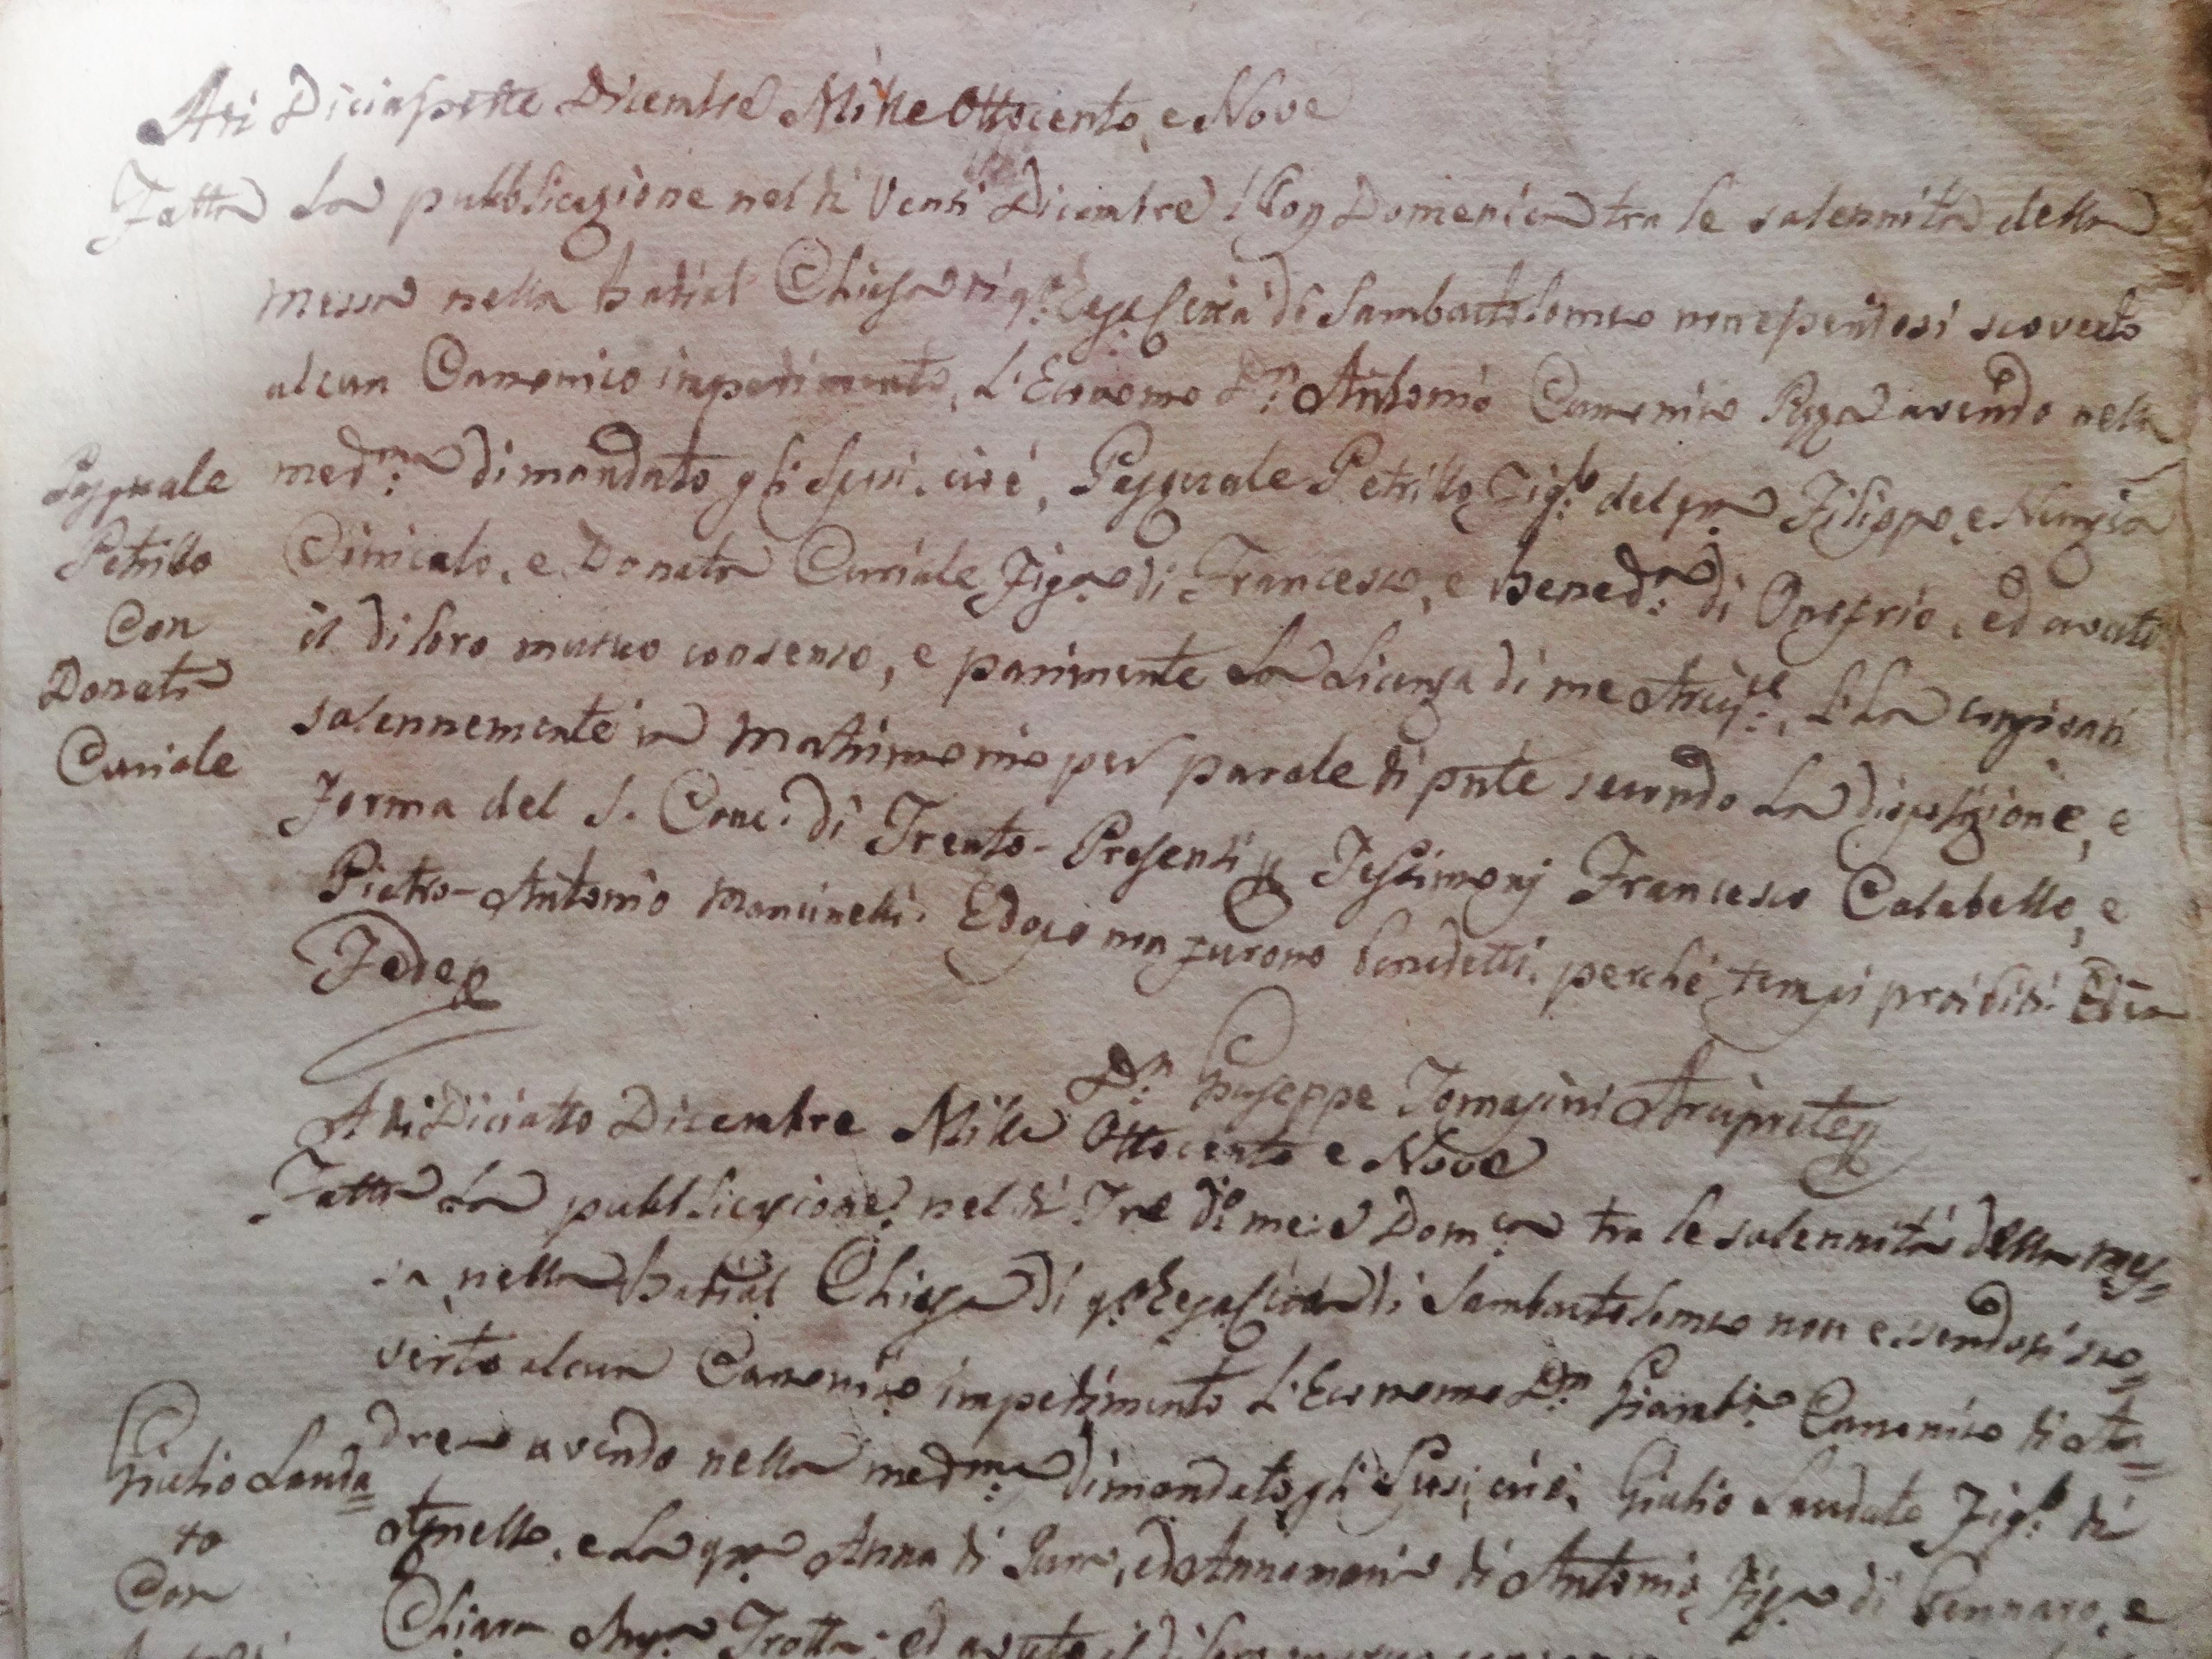 A di Diciassette Dicembre Mille Ottocento, e Nove
Fatta La pubblicazione nel di Venti Dicembre Domenica tra le solennità della
messa nella Badial Chiesa di q.ta Regal Città di Sambartolomeo non essendosi scoverto
alcun Canonico impedimento, L'Economo D.n Antonio Canonico avendo nella
Pasquale
Petrillo
Con
Donata
Curiale
med.ma dimandato gli Sposi, cioè, Pasquale Petrillo Fig.lo del qm Filippo, e Nunzia
Cinicolo, e Donata Curiale Fig.a di Francesco, e Bened.a di Onofrio, ed avuto
il di loro mutuo consenso, e parimente La Licenza di me Arcip.te, Li La congionti
solennemente in Matrimonio per parole di pnte secondo La disposizione, e
Forma del S. Conc. di Trento - Presenti Testimonj Francesco Calabello, e
Pietro-Antonio Mancinelli. non furono benedetti, perchè tempi proibiti. Ed in
Fede
D.n Giuseppe Tomasini Arciprete
A di Diciotto Dicembre Mille Ottocento e Nove
Fatta La pubblicazione nel di Tre d.o mese Dom.ca tra le solennità della mes=
sa nella Badial Chiesa di q.ta Regal Città di Sambartolomeo non essendosi sco=
verto alcun Canonico impedimento L'Economo D.n Giamb.a Canonico di An=
Giulio Lauda=
to
Con
drea avendo nella med.ma dimandato gli Sposi, cioè, Giulio Laudato Fig.lo di
Agnello, e La qm Anna di Iura, ed Annamaria di Antonio, Fig.a di Gennaro, e
Chiara Trotta; ed avuto il di loro mutuo consenso